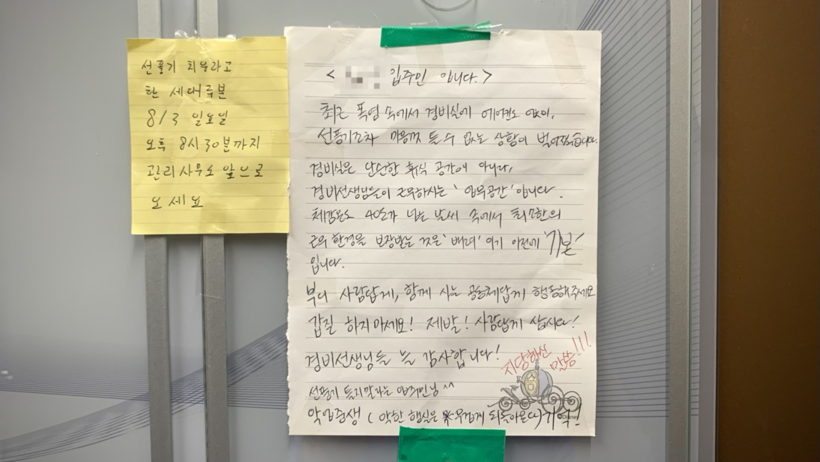 선풍기 치우라고
한 세대주분
8/3 일요일
오후 8시30분까지
관리사무소 앞으로
오세요
< 입주민 입니다.>
최근 폭염 속에서 경비실에 에어컨도 없이,
선풍기조차 마음껏 틀 수 없는 상황이 벌어졌습니다.
경비실은 단순한 휴식 공간이 아니라,
경비선생님들이 근무하시는 '업무공간' 입니다.
체감온도 40도가 넘는 날씨 속에서 최소한의
근무 환경을 보장받는 것은 '배려' 이기 이전에 '기본'
입니다.
부디 사람답게, 함께 사는 공동체답게 행동해주세요
갑질 하지마세요! 제발! 사람답게 삽시다!
경비선생님들 늘 감사합니다!
지당하신
말씀!!!
선풍기 틀지말라는 입주민님^^
악업중생 ( 악한 행실은 무겁게 되돌아온다) 기억!